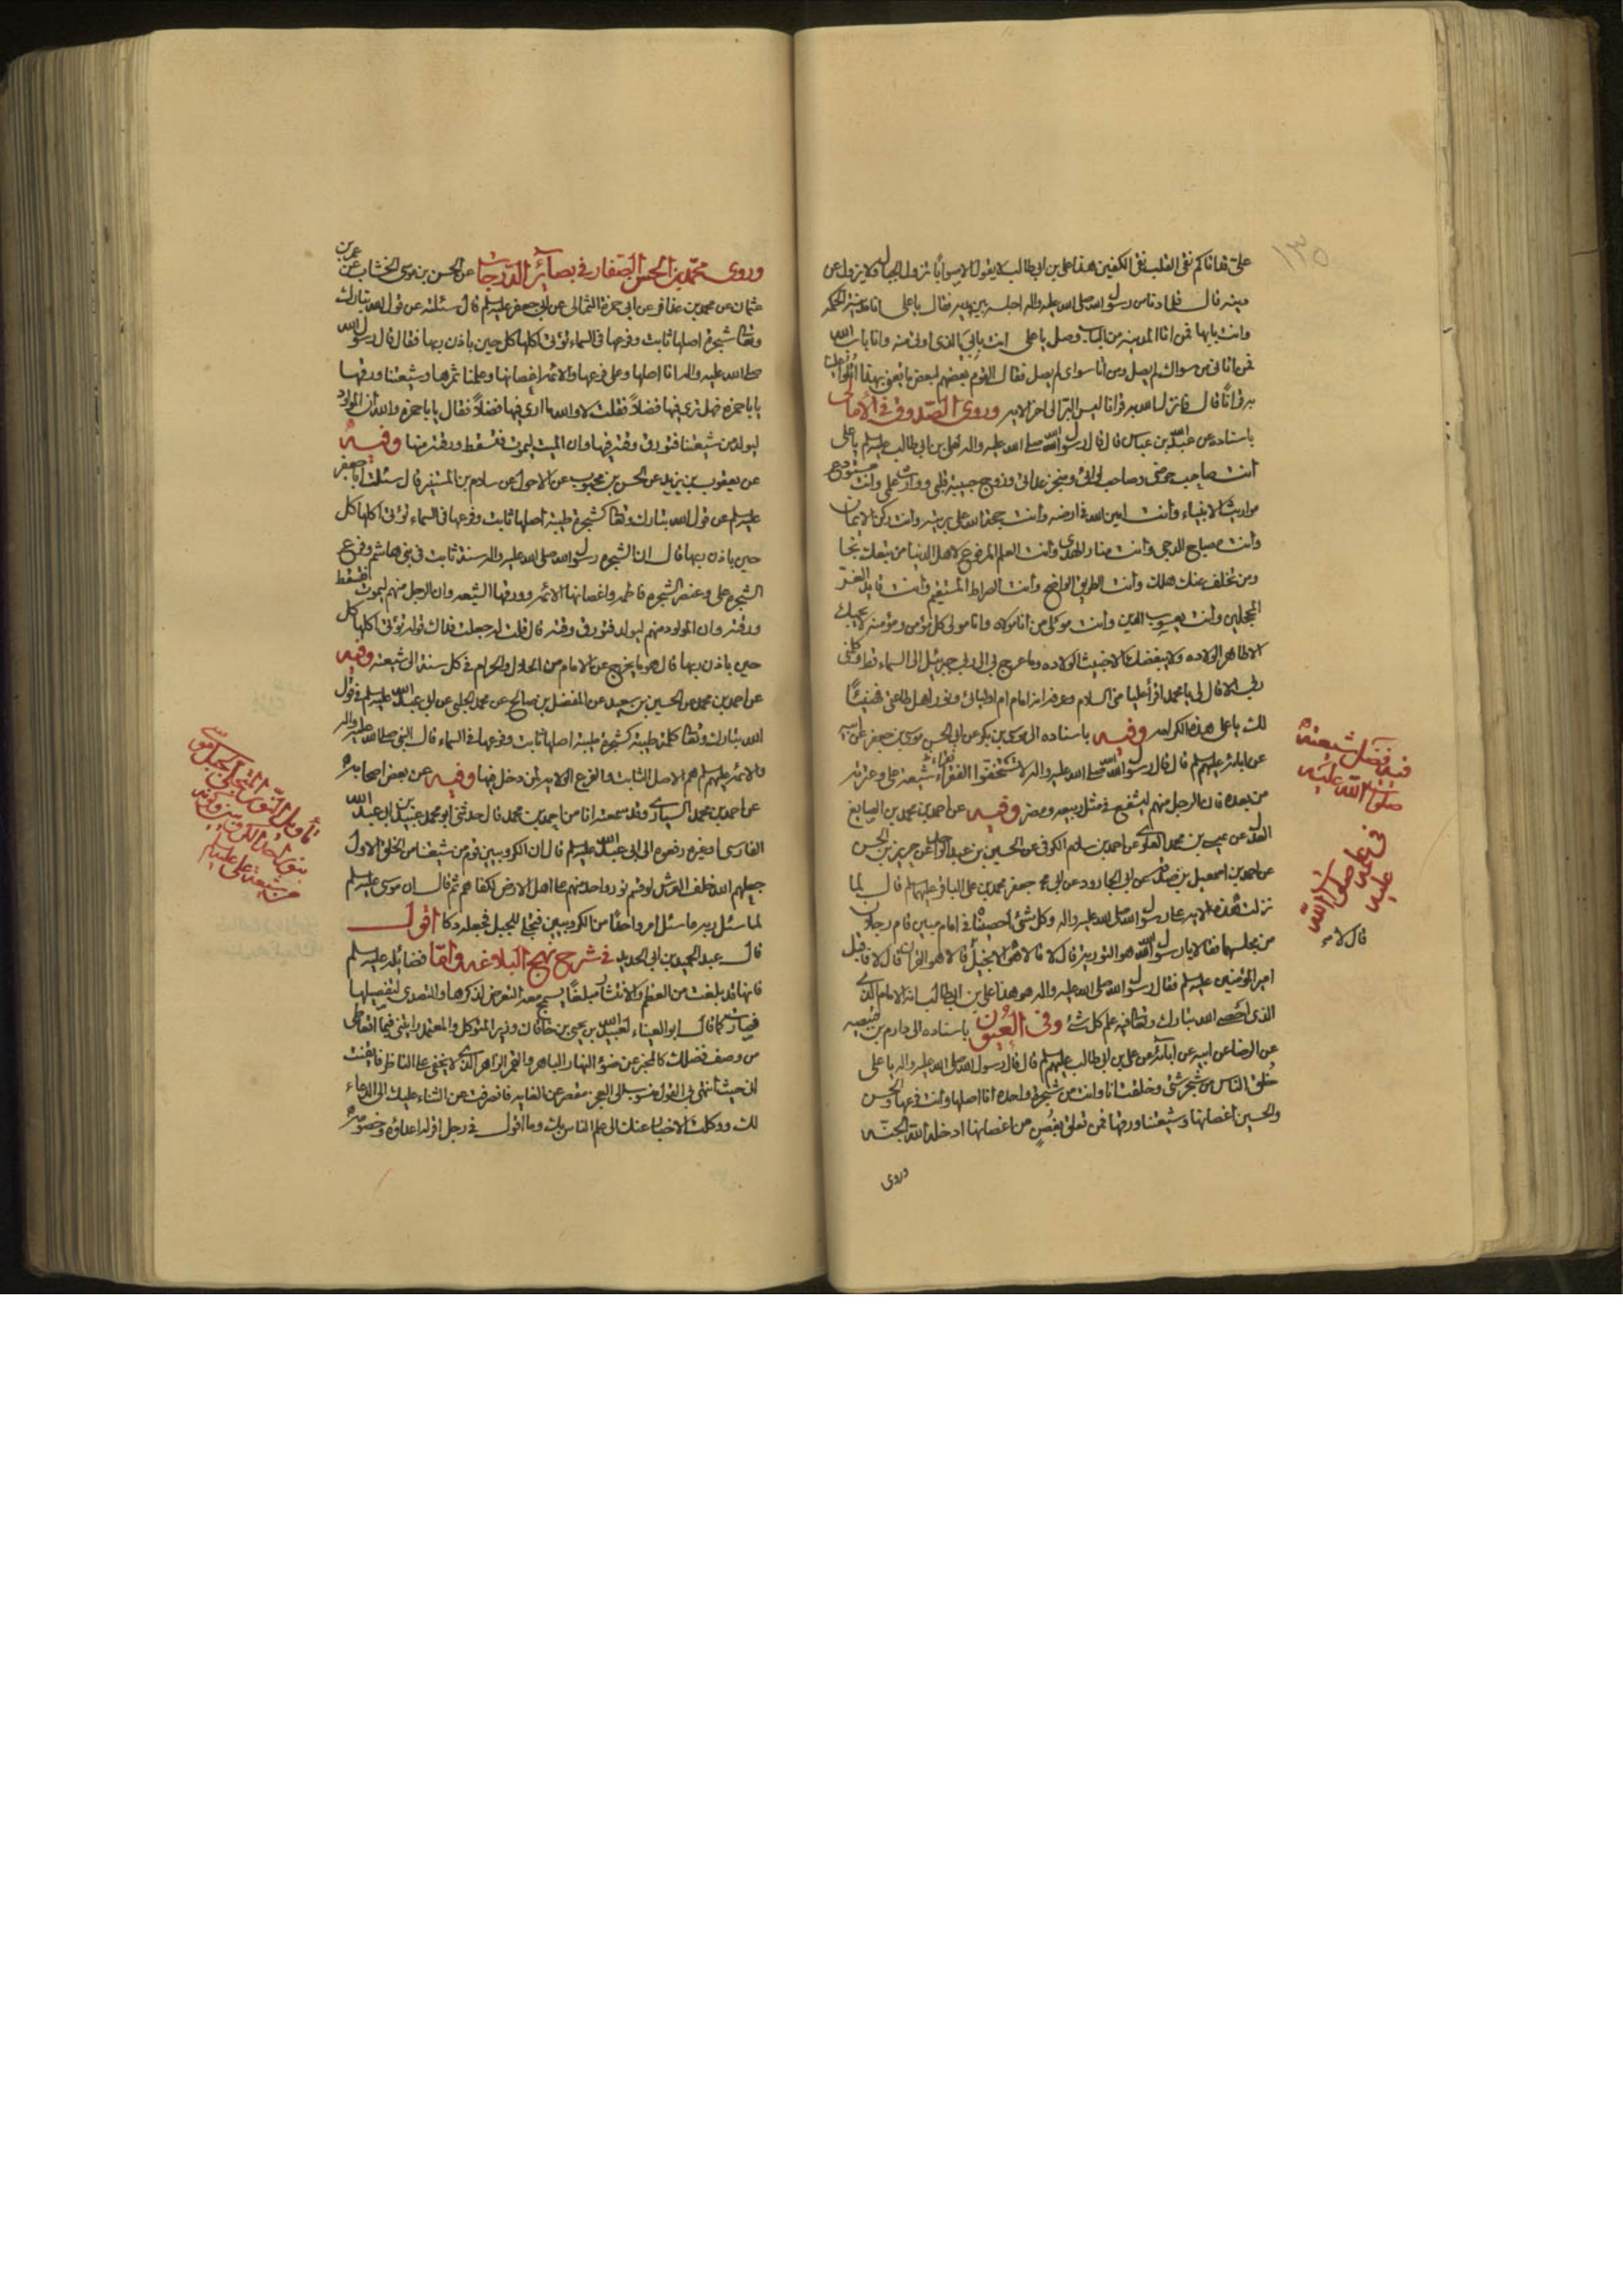 ١٣٥
على فقد اتاكم نقى القلب نقى الكفين هذا على بن ابى طالب لا يقول الا صوابًا تزول الجبال ولا يزول عن
دينه قال فلما دنا من رسول الله صلى الله عليه واله اجلسه بين يديه فقال يا على انا مدينة الحكمه
وانت بابها فمن اتا المدينه من الباب وصل يا على انت بابى الذى اوتى منه وانا باب الله
فمن اتانى من سواك لم يصل ومن اتا سواى لم يصل فقال القوم بعضهم لبعض ما يعنى بهذا
به قرانًا قال فانزل الله به قرانا ليس البر الى اخر الايه وروى الصدوق فى الأمالى
باسناده عن عبد الله بن عباس قال قال رسول الله صلى الله عليه واله لعلى بن ابى طالب عليه السلم يا على
أنت صاحب حوضى وصاحب لوائى ومنجز عداتى وزوج حبيبة قلبى ووارث علمى وانت مستودع
مواريث الانبياء وأنت امين الله فى ارضه وأنت حجة الله على بريته وأنت ركن الايمان
وأنت مصباح الدجى وأنت منار الهدى وأنت العلم المرفوع لاهل الدنيا من تبعك نجا
ومن تخلف عنك هلك وأنت الطريق الواضح وأنت الصراط المستقيم وأنت قايد الغر
المحجلين وأنت يعسوب الدين وأنت مولى من انا مولاه وانا مولى كل مؤمن ومؤمنه لا يحبك
الا طاهر الولاده ولا يبغضك الا خبيث الولاده وما عرج بى الى ربى جبرئيل الى السماء قط وكلمنى
ربى الا قال لى يا محمد اقرأ عليا منى السلام وعرفه انه امام اوليائى ونور اهل طاعتى فهنيئًا
لك يا على هذه الكرامه وفيه باسناده الى موسى بن بكر عن ابى الحسن موسى بن جعفر عن ابيه
عن ابائه عليهم السلم قال قال رسول الله صلى الله عليه واله لا تستخفوا الفقراء شيعة على وعترته
من بعده فان الرجل منهم ليشفع فى مثل ربيعه ومضر وفيه عن احمد بن محمد بن الصايغ
العدل عن عيسى بن محمد العلوى عن احمد بن سلام الكوفى عن الحسين بن عبد الواحد عن حرب بن الحسن
عن احمد بن اسمعيل بن صدقه عن ابى الجارود عن ابى جعفر محمد بن على الباقر عليهما السلم قال لما
نزلت هذه الايه على رسول الله صلى الله عليه واله وكل شئ أحصيناه فى امام مبين قام رجلان
من مجلسهما فقالا يا رسول الله هو التوريه قال لا قالا هو الانجيل قال لا قالا هو القران قال لا فاقبل
امير المؤمنين عليه السلم فقال رسول الله صلى الله عليه واله هو هذا على بن ابى طالب انه الامام الذى
الذى احصى الله تبارك وتعالى فيه علم كل شئ وفى العُيُون باسناده الى دارم بن قبيصه
عن الرضا عن ابيه عن ابائه عن على بن ابى طالب عليهم السلم قال قال رسول الله صلى الله عليه واله يا على
خُلق الناس من شجر شتى وخلقت انا وانت من شجرة واحده انا اصلها وانت فرعها والحسن
والحسين اغصانها وشيعتنا ورقها فمن تعلق بغصنٍ من اغصانها ادخله الله الجنّه
وروى
فيه فضل شيعته
صلوات الله عليه
فى علمه
صلوات الله
عليه
قال لا م
وروى محمّد بن الحسن الصّفار فى بصآئر الدّرجات عن الحسن بن موسى الخشاب عن عمر بن
عثمان عن محمد بن عذافر عن ابى حمزة الثمالى عن ابى جعفر عليه السلم قال سئلته عن قول الله تبارك
وتعالى شجرة اصلها ثابت وفرعها فى السماء تؤتى اكلها كل حين باذن ربها فقال قال رسول الله
صلى الله عليه واله انا اصلها وعلى فرعها والائمه اغصانها وعلمنا ثمرها وشيعتنا ورقها
يا با حمزه فهل ترى فيها فضلاً فقلت لا والله ما ارى فيها فضلاً فقال يا با حمزه والله ان المولود
ليولد من شيعتنا فتورق ورقه فيها وان الميت ليموت فتسقط ورقه منها وفيه
عن يعقوب بن يزيد عن الحسن بن محبوب عن الاحول عن سلام بن المستنير قال سئلت ابا جعفر
عليه السلم عن قول الله تبارك وتعالى كشجرة طيبة اصلها ثابت وفرعها فى السماء تؤتى اكلها كل
حين باذن ربها قال ان الشجره رسول الله صلى الله عليه واله نسبه ثابت فى بنى هاشم وفرع
الشجره على وعنصر الشجره فاطمه واغصانها الائمه وورقها الشيعه وان الرجل منهم ليموت فتسقط
ورقه وان المولود منهم ليولد فتورق ورقه قال قلت له جعلت فداك قوله تؤتى اكلها كل
حين باذن ربها قال هو ما يخرج عن الامام من الحلال والحرام فى كل سنة الى شيعته وفيه
عن احمد بن محمد عن الحسين بن سعيد عن المفضل بن صالح عن محمد الحلبى عن ابى عبد الله عليه السلم فى قول
الله تبارك وتعالى كلمة طيبة كشجرة طيبة اصلها ثابت وفرعها فى السماء قال النبى صلى الله عليه واله
والائمه عليهم السلم هم الاصل الثابت والفرع الولايه لمن دخل فيها وفيه عن بعض اصحابه
عن احمد بن محمد السيارى وقد سمعته انا من احمد بن محمد قال حدثنى ابو محمد عبيد بن ابى عبد الله
الفارسى وغيره رفعوه الى ابى عبد الله عليه السلم قال ان الكروبيين قوم من شيعتنا من الخلق الاول
جعلهم الله خلف العرش لو قسم نور واحد منهم على اهل الارض لكفاهم ثم قال ان موسى عليه السلم
لما سئل ربه ما سئل امر واحدًا من الكروبيين فتجلى للجبل فجعله دكا اقول
قال عبد الحميد بن ابى الحديد فى شرح نهج البلاغه وامّا فضائله عليه السلم
فانها قد بلغت من العظم والانتشار مبلغًا يسمج معه التعرض لذكرها والتصدى لتفصيلها
فصارت كما قال ابو العيناء لعبيد الله بن يحيى بن خاقان وزير المتوكل والمعتمد رايتنى فيما اتعاطى
من وصف فضلك كالمخبر عن ضوء النهار الباهر والقمر الزاهر الذى لا يخفى على الناظر فايقنت
انى حيث انتهى بى القول منسوب الى العجز مقصر عن الغايه فانصرفت عن الثناء عليك الى الدعاء
لك ووكلت الاخبار عنك الى علم الناس بك وما اقول فى رجل اقر له اعداؤه وخصومه
تأويل
من شيعة على عليه السلم